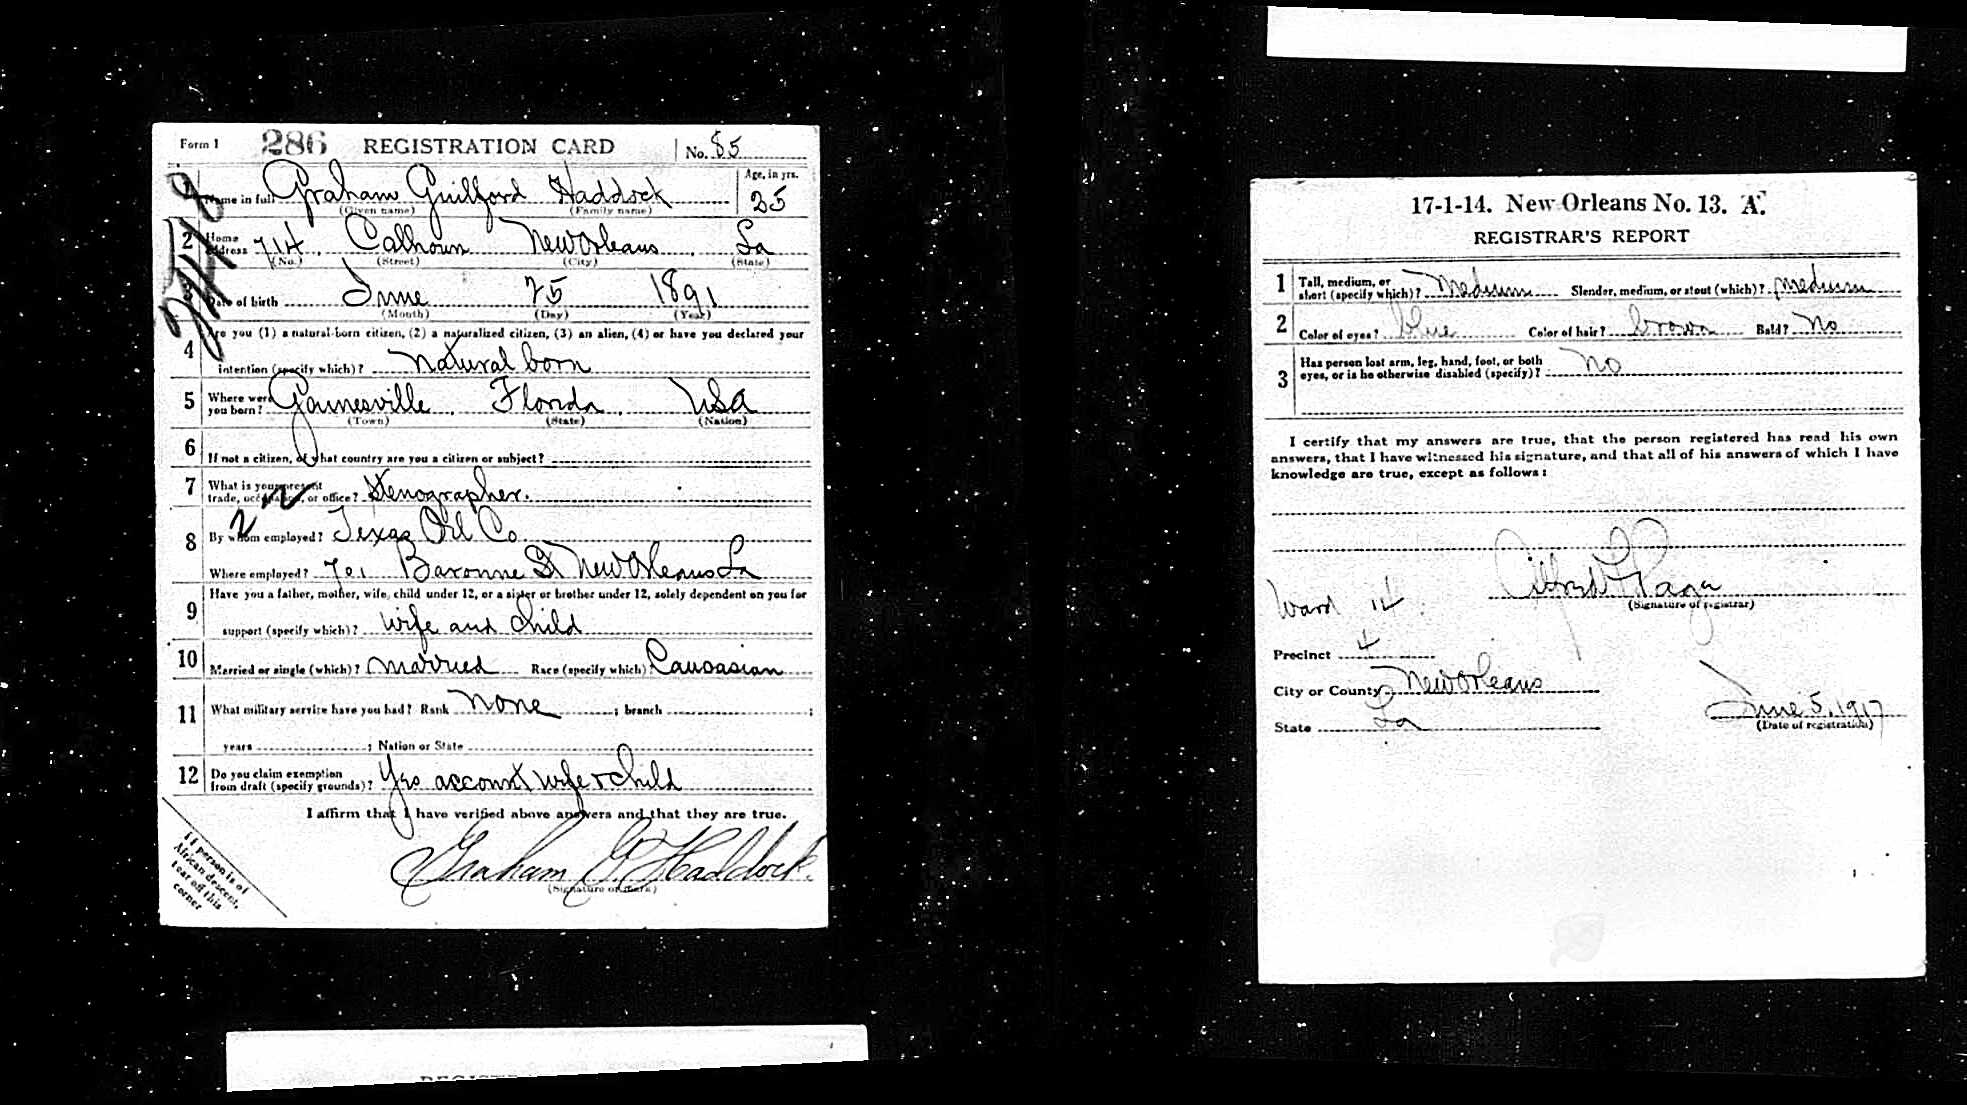 Form 1 286 REGISTRATION CARD No. 85
Name in full Graham Guilford Haddock Age, in yrs. 25
(Given name) (Family name)
2 Home address 714 Calhoun New Orleans, La
(No.) (Street) (City) (State)
Date of birth June 25 1891
(Month) (Day) (Year)
Are you (1) a natural-born citizen, (2) a naturalized citizen, (3) an alien, (4) or have you declared your
4 intention (specify which)? natural born
5 Where were you born? Gainesville, Florida, USA
(Town) (State) (Nation)
6 If not a citizen, of what country are you a citizen or subject?
7 What is your present trade, occupation, or office? Stenographer.
8 By whom employed? Texas Oil Co
Where employed? 701 Baronne St New Orleans La
9 Have you a father, mother, wife, child under 12, or a sister or brother under 12, solely dependent on you for
support (specify which)? wife and child
10 Married or single (which)? married Race (specify which) Caucasian
11 What military service have you had? Rank none ; branch ;
years ; Nation or State
12 Do you claim exemption from draft (specify grounds)? Yes account wife & child
I affirm that I have verified above answers and that they are true.
Graham G. Haddock.
(Signature or mark)
If person is of
African descent,
tear off this
corner
17-1-14. New Orleans No. 13. A.
REGISTRAR'S REPORT
1 Tall, medium, or short (specify which)? Medium Slender, medium, or stout (which)? medium
2 Color of eyes? blue Color of hair? brown Bald? No
3 Has person lost arm, leg, hand, foot, or both eyes, or is he otherwise disabled (specify)? No
I certify that my answers are true, that the person registered has read his own
answers, that I have witnessed his signature, and that all of his answers of which I have
knowledge are true, except as follows:
Alfred
(Signature of registrar)
Ward 14
Precinct 4
City or County New Orleans
State La
June 5, 1917
(Date of registration)